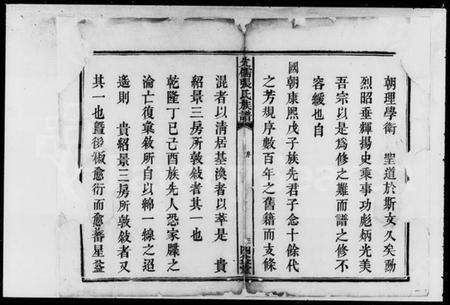 朝理學衛 聖道於斯文久矣勛
烈昭垂輝揚史乘事功彪炳光美
吾宗以是為修之難而譜之修不
容緩也自
國朝康熙戊子族先君子念十餘代
之芳規序數百年之舊籍而支條
張氏族譜
序
混者以清居基渙者以萃是 貴
紹景三房所敦敘者其一也
乾隆丁巳己酉族先人恐家牒之
淪亡復彙敘所自以綿一線之迢
遙則 貴紹景三房所敦敘者又
其一也暨後振愈衍而愈蕃星